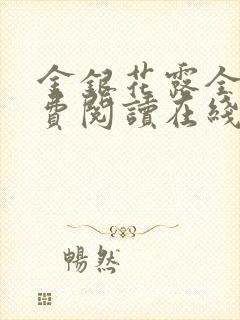 金銀花露全
費閱讀在綫
暢然